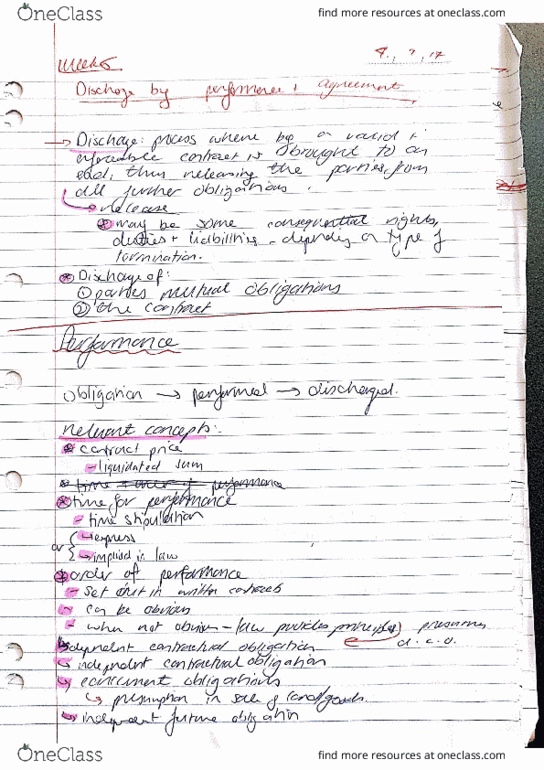 OneClass
find more resources at oneclass.com
week 6
Discharge by performance + agreement
→ Discharge: process where by a valid +
enforceable contract is brought to an
end, thus releasing the parties from
all further obligations.
release
may be some consequential rights,
duties + liabilities - depending on type of
termination.
Discharge of:
① parties mutual obligations
② the contract
Performance
obligation → performed → discharged.
relevant concepts:
contract price
- liquidated sum
time for performance
- time stipulation
or express
implied in law
order of performance
- set out in written contracts
- can be obvious
- when not obvious - law provides principles) presumes
d.c.o.
dependent contractual obligation
independent contractual obligation
concurrent obligations
↳ presumption in sale of land/goods.
independent future obligation
OneClass
find more resources at oneclass.com